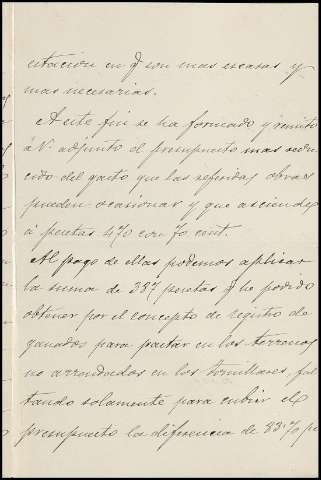 estación en q̃ son mas escasas y
mas necesarias.
A este fin se ha formado y remito
á V. adjunto el presupuesto mas redu-
cido del gasto que las referidas obras
pueden ocasionar y que asciende
á pesetas 470 con 70 cent.
Al pago de ellas podemos aplicar
la suma de 387 pesetas q̃ he podido
obtener por el concepto de registro de
ganados para pastar en los terrenos
no arrendados en los tomillares, fal
tando solamente para cubrir el
presupuesto la diferencia de 83'70 pe